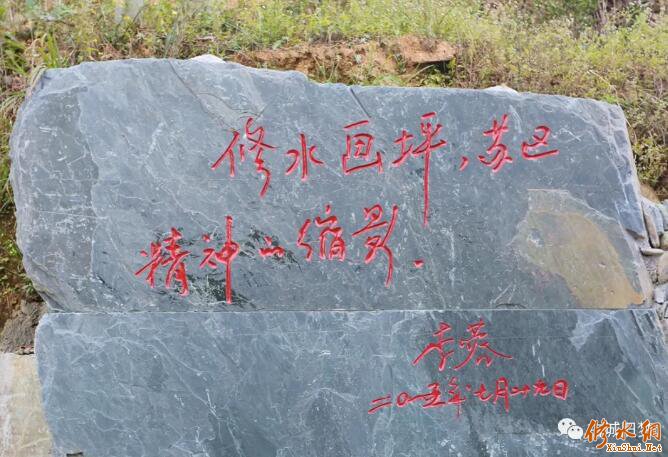 修水画坪，苏区
精神的缩影。
李蓉
二〇一五年七月二十九日
修水網
XiuShui.Net